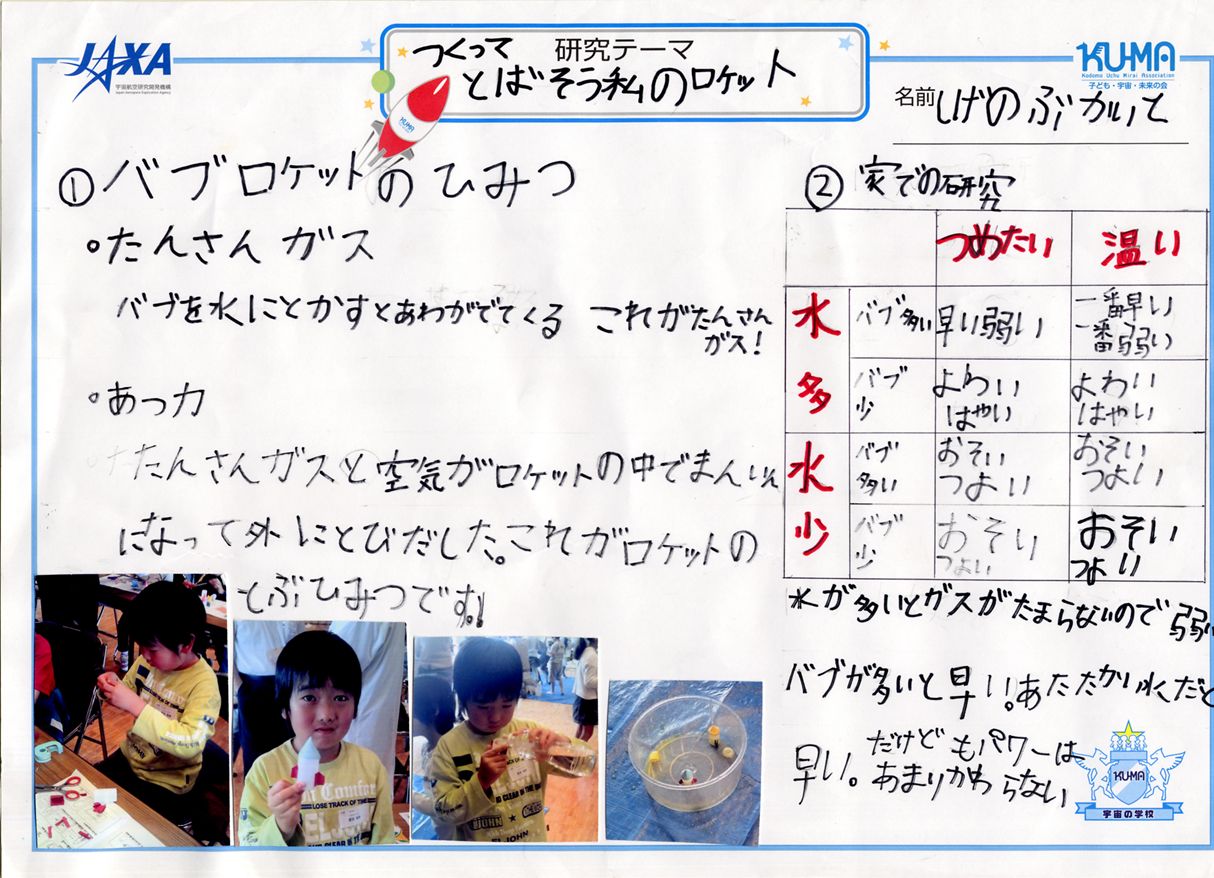 JAXA
宇宙航空研究開発機構
Japan Aerospace Exploration Agency
研究テーマ
つくって
とばそう私のロケット
KUMA
KUMA
Kodomo Uchu Mirai Association
子ども・宇宙・未来の会
名前 しげのぶかいと
① バブロケットのひみつ
・たんさんガス
バブを水にとかすとあわがでてくる これがたんさん
ガス!
・あっ力
たんさんガスと空気がロケットの中でまんいん
になって外にとびだした。これがロケットの
とぶひみつです!
② 家での研究
つめたい 温い
水多 バブ多い 早い弱い 一番早い一番弱い
バブ少 よわいはやい よわいはやい
水少 バブ多い おそいつよい おそいつよい
バブ少 おそいつよい おそいつよい
水が多いとガスがたまらないので弱い
バブが多いと早い。あたたかい水だと
早い。だけどもパワーは
あまりかわらない
KUMA
宇宙の学校
LOSE TRACK OF THE
JOHN
EL JOHN